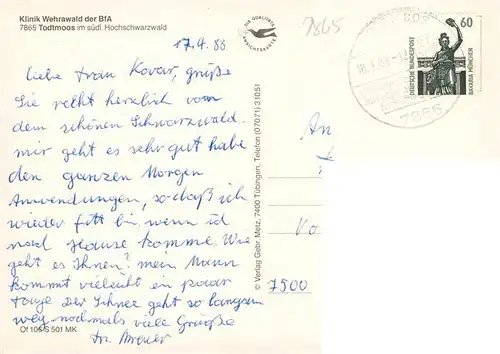 Klinik Wehrawald der BfA
7865 Todtmoos im südl. Hochschwarzwald
17.4.88
Liebe Frau Kovar, grüße
Sie recht herzlich vom
dem schönen Schwarzwald.
mir geht es sehr gut habe
den ganzen Morgen
Anwendungen, so daß ich
wieder fitt bin, wenn ich
nach Hause komme. Wie
geht es Ihnen? mein Mann
kommt vieleicht ein paar
Tage Der Schnee geht so langsam
weg. nochmals viele Grüße
Fr.
Of 106 S 501 MK
DIE QUALITÄTS
ANSICHTSKARTE
© Verlag Gebr. Metz, 7400 Tübingen, Telefon (07071) 31051
7865
18.4.88
7865
60
DEUTSCHE BUNDESPOST
BAVARIA MÜNCHEN
An
7500